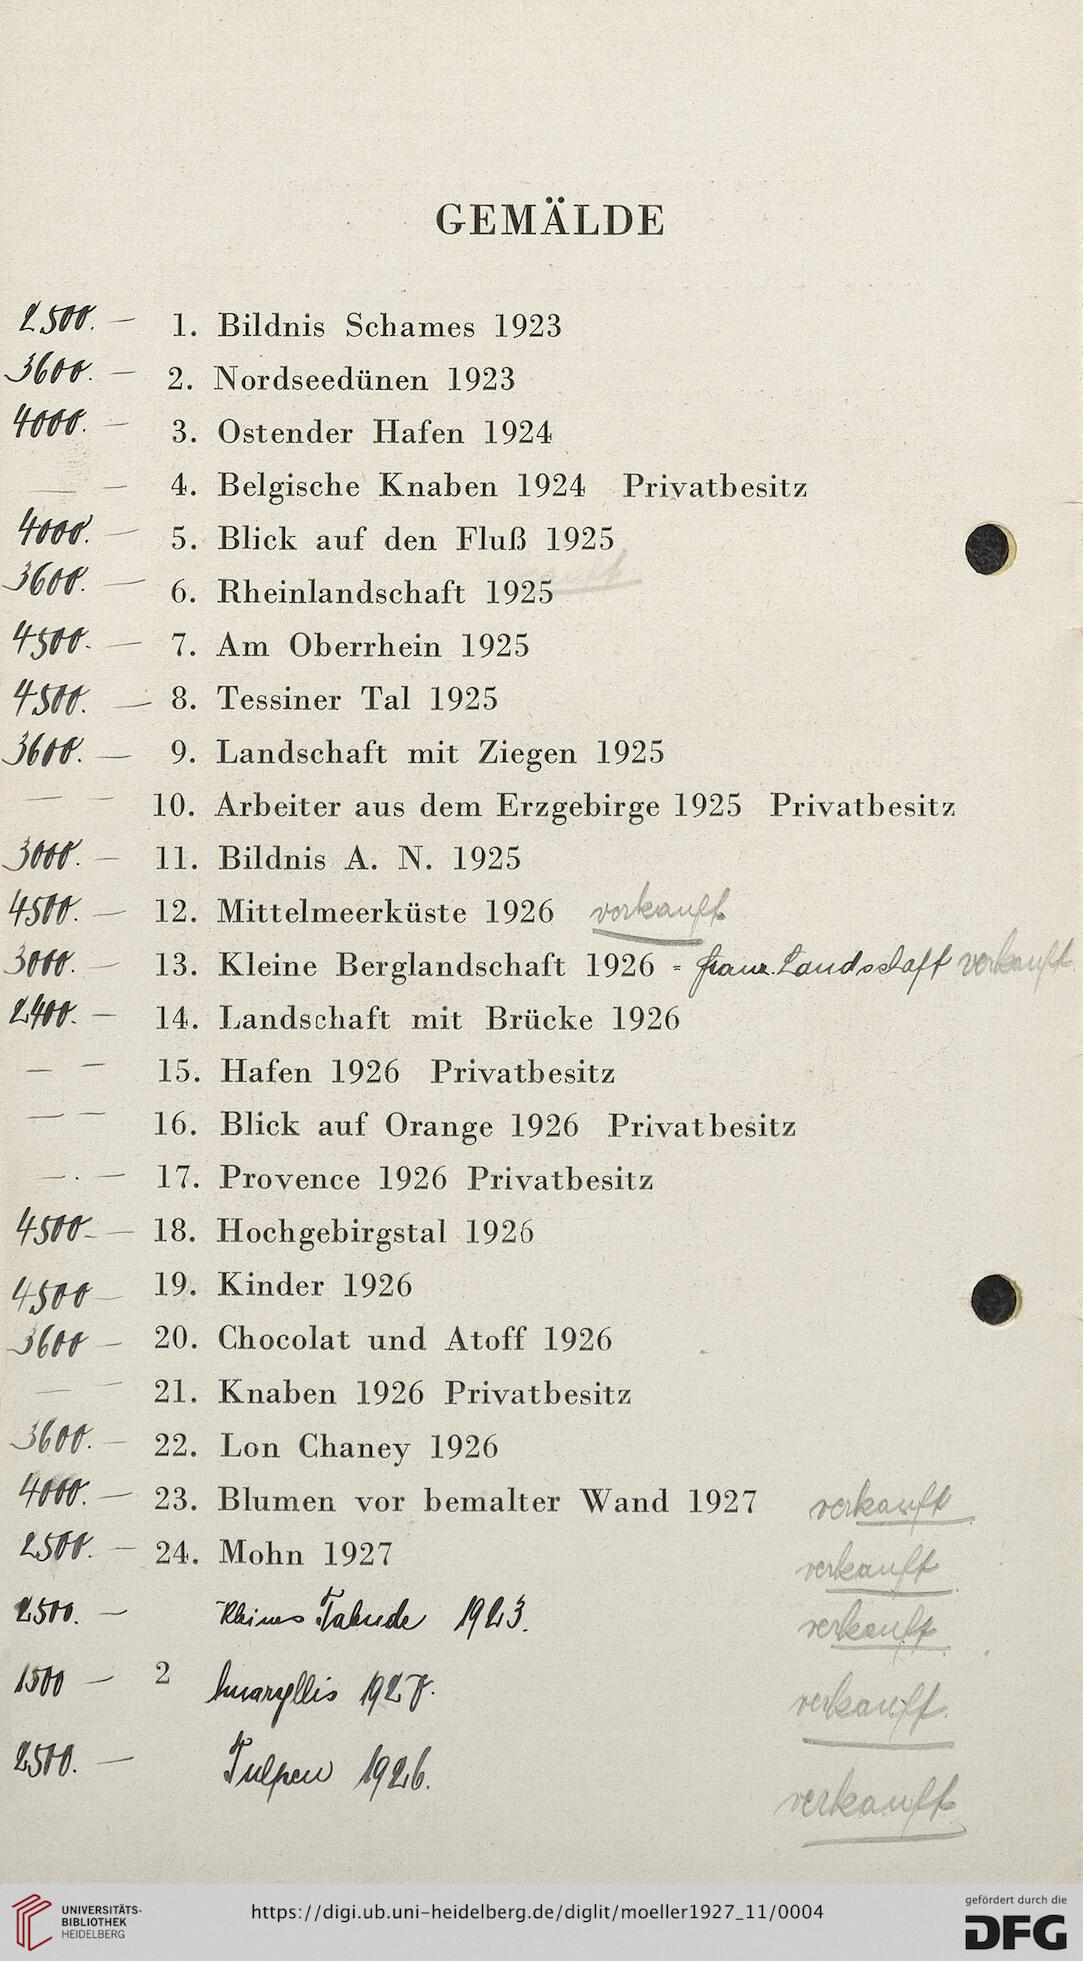 GEMÄLDE
2500. — 1. Bildnis Schames 1923
3600. — 2. Nordseedünen 1923
4000. — 3. Ostender Hafen 1924
— — 4. Belgische Knaben 1924 Privatbesitz
4000. — 5. Blick auf den Fluß 1925
3600. — 6. Rheinlandschaft 1925
4500. — 7. Am Oberrhein 1925
4500. — 8. Tessiner Tal 1925
3600. — 9. Landschaft mit Ziegen 1925
— — 10. Arbeiter aus dem Erzgebirge 1925 Privatbesitz
3000. — 11. Bildnis A. N. 1925
4500. — 12. Mittelmeerküste 1926 verkauft
3000. — 13. Kleine Berglandschaft 1926 = franz. Landschaft verkauft
2400. — 14. Landschaft mit Brücke 1926
— — 15. Hafen 1926 Privatbesitz
— — 16. Blick auf Orange 1926 Privatbesitz
— . — 17. Provence 1926 Privatbesitz
4500 — 18. Hochgebirgstal 1926
4500 — 19. Kinder 1926
3600 — 20. Chocolat und Atoff 1926
— — 21. Knaben 1926 Privatbesitz
3600. — 22. Lon Chaney 1926
4000. — 23. Blumen vor bemalter Wand 1927 verkauft
2500. — 24. Mohn 1927 verkauft
2500. — 1923. verkauft
1500 — 2 Amaryllis 1927. verkauft.
2500. — Tulpen 1926. verkauft
UNIVERSITÄTS-
BIBLIOTHEK
HEIDELBERG
https://digi.ub.uni-heidelberg.de/diglit/moeller1927_11/0004
gefördert durch die
DFG